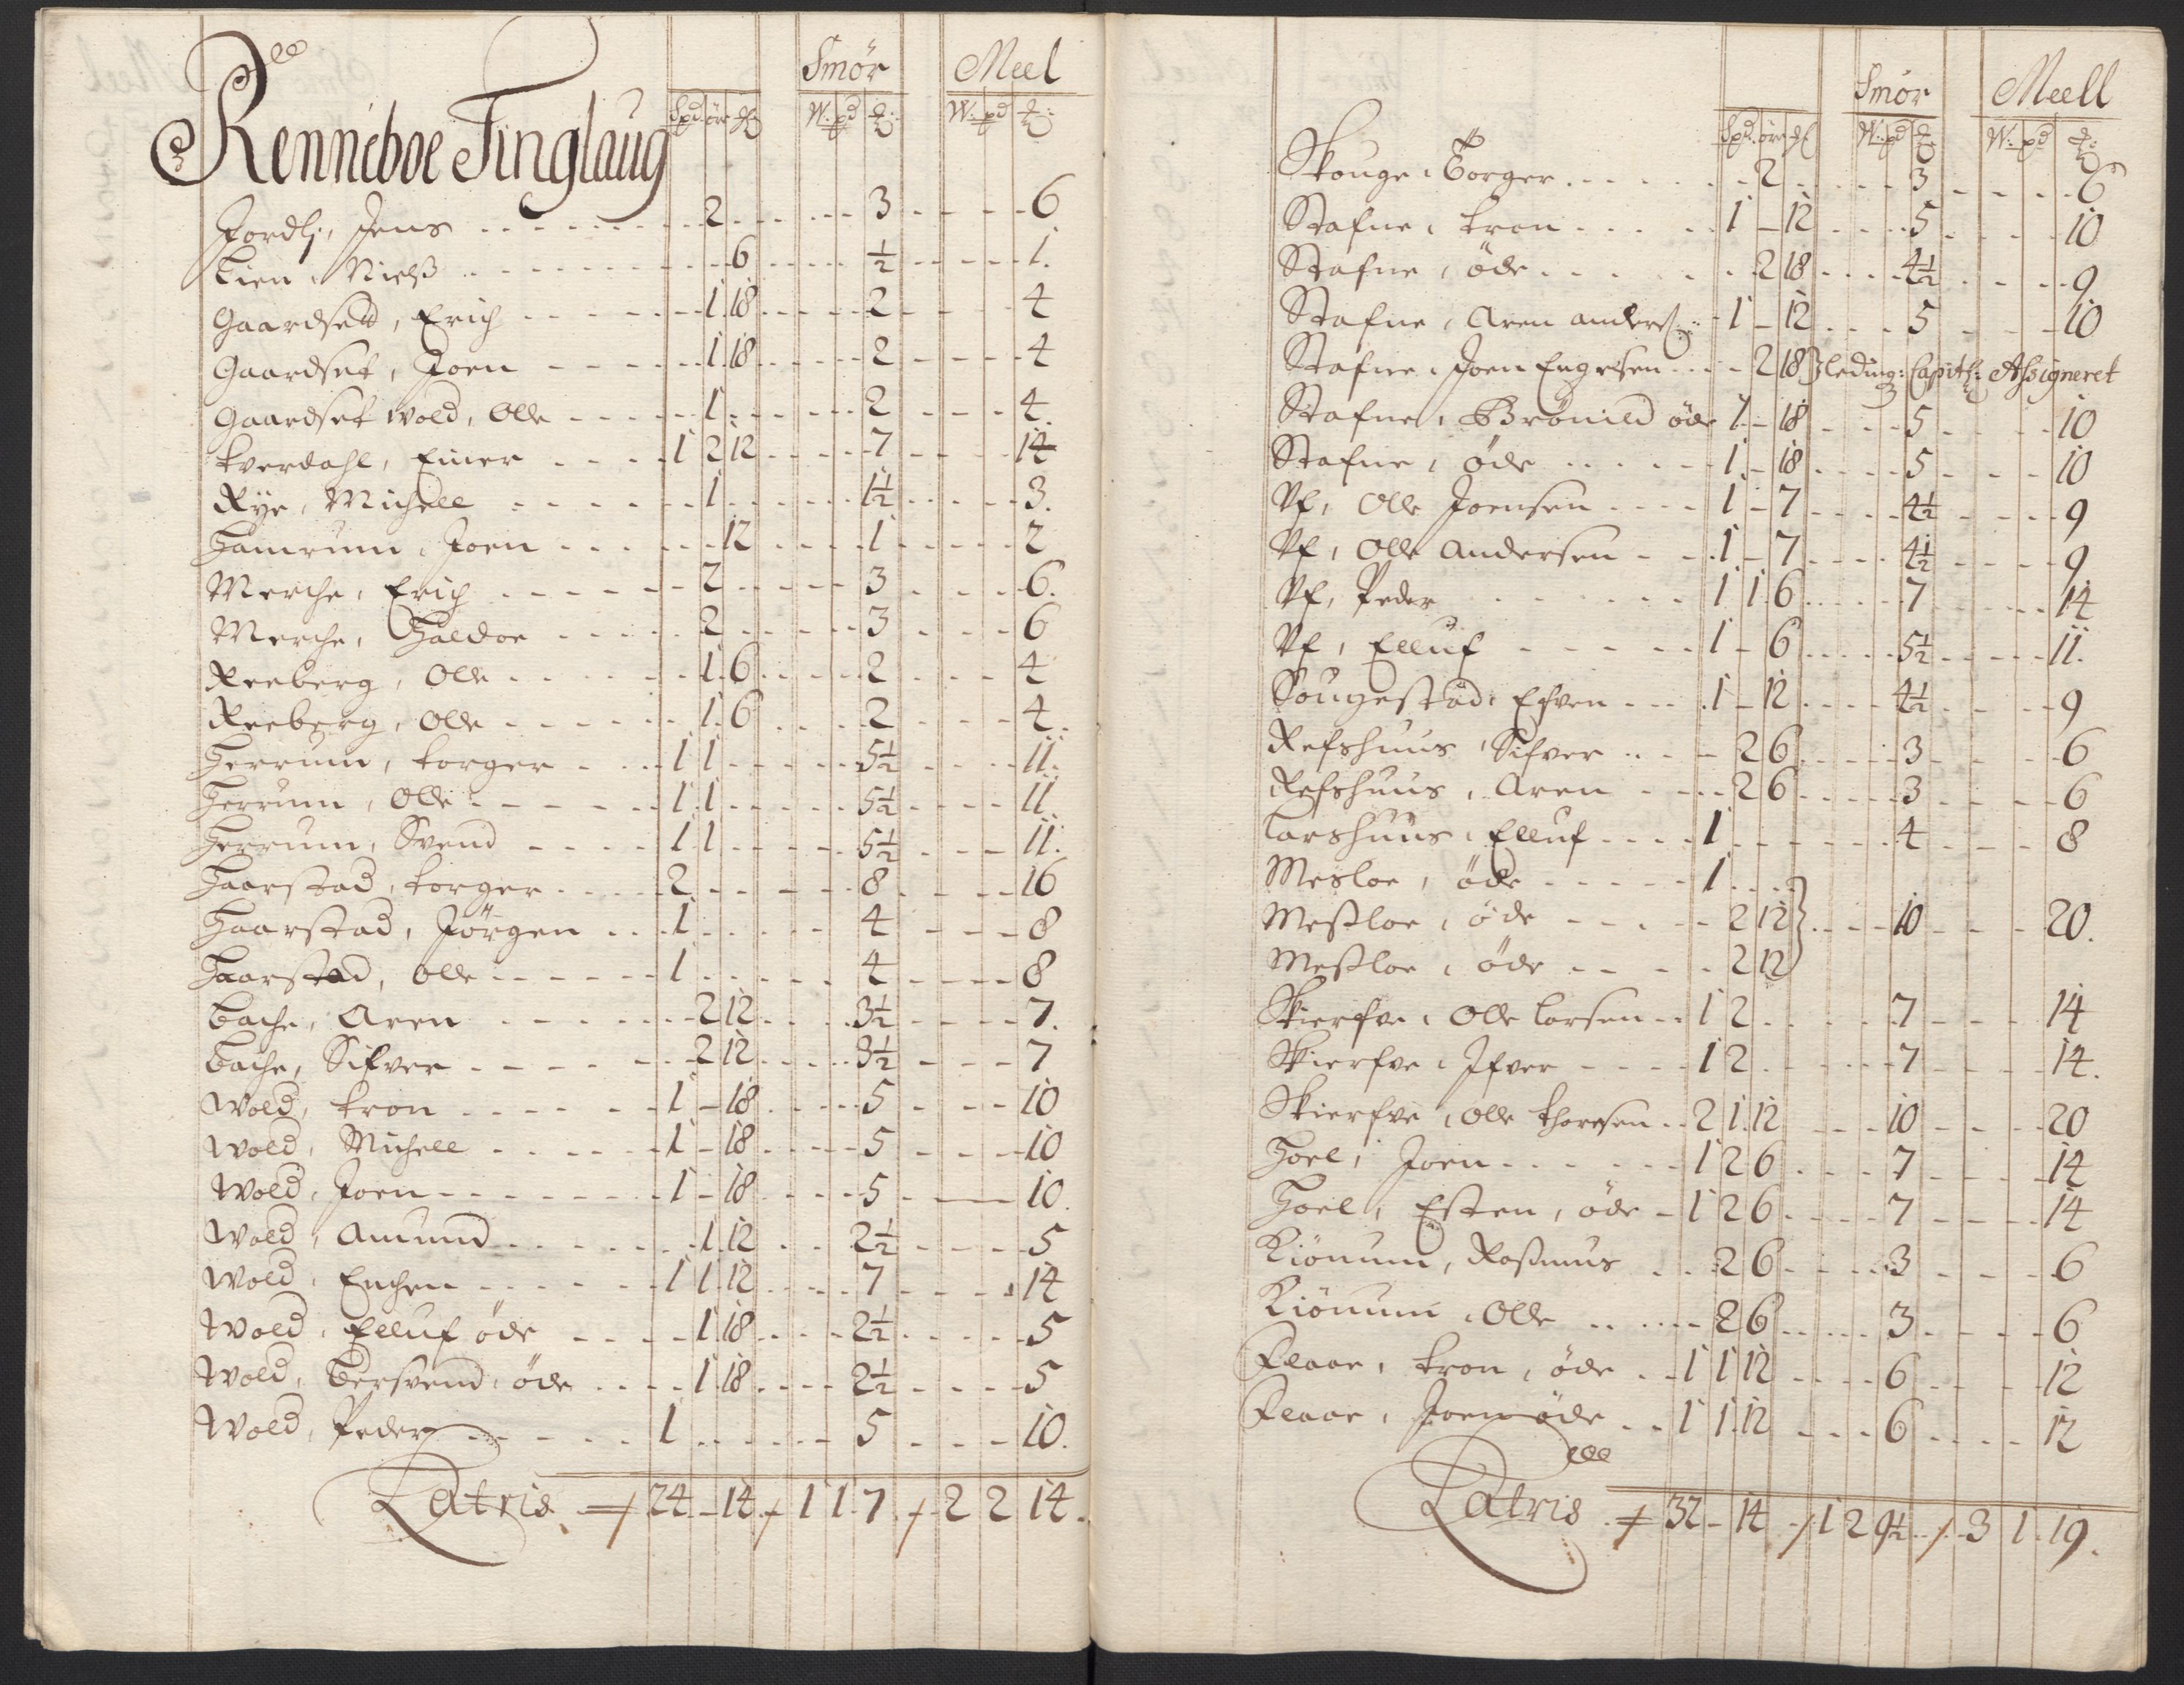 Smør Meel
Spd ör W: pd W: pd
Renneboe Tinglaug
Jordli, Jens 2 3 6
Lien, Nielß 6 ½ 1.
Gaardsett, Erich 1 18 2 4
Gaardset, Joen 1 18 2 4
Gaardset Wold, Olle 1 2 4
Kverdahl, Einer 1 2 12 7 14
Rÿe, Michell 1 1½ 3.
Hamrum, Joen 12 1 2
Merche, Erich 2 3 6.
Merche, Haldor 2 3 6
Reeberg, Olle 1 6 2 4
Reeberg, Olle 1 6 2 4.
Herrum, Torger 1 1 5½ 11.
Herrum, Olle 1 1 5½ 11.
Herrum, Svend 1 1 5½ 11.
Haarstad, Torger 2 8 16
Haarstad, Jörgen 1 4 8
Haarstad, Olle 1 4 8
Bache, Aren 2 12 3½ 7.
Bache, Sifver 2 12 3½ 7
Wold, Tron 1 - 18 5 10
Wold, Michell 1 - 18 5 10
Wold, Joen 1 - 18 5 10.
Wold, Amund 1 12 2½ 5
Wold, Enchen 1 1 12 7 14
Wold, Elluf öde 1 18 2½ 5
Wold, Bersvend, öde 1 18 2½ 5
Wold, Peder 1 5 10.
Latris 24 - 14 1 1 7 2 2 14.
Smør Meell
Spd ör W: pd W: pd
Skouge, Torger 2 3 6
Stafne, Tron 1 - 12 5 10
Stafne, öde 2 18 4½ 9
Stafne, Aren anders: 1 - 12 5 10
Stafne, Joen Engelsen 2 18 leding: Capit: Assigneret
Stafne, Brönild öde 1 - 18 5 10
Stafne, öde 1 - 18 5 10
Vf, Olle Joensen 1 - 7 4½ 9
Vf, Olle Andersen 1 - 7 4½ 9
Vf, Peder 1 1 6 7 14
Vf, Elluf 1 - 6 5½ 11.
Sougestad, Esven 1 - 12 4½ 9
Refshuus, Sifver 2 6 3 6
Refshuus, Aren 2 6 3 6
Larshuus, Elluf 1 4 8
Mesloe, öde 1
Meßloe, öde 2 12 10 20.
Meßloe, öde 2 12
Skierfve, Olle Larsen 1 2 7 14
Skierfve, Ifver 1 2 7 14.
Skierfve, Olle Thoresen 2 1 12 10 20
Hoel, Joen 1 2 6 7 14
Hoel, Esten, öde 1 2 6 7 14
Kiönum, Raßmus 2 6 3 6
Kiönum, Olle 2 6 3 6
Flaae, Tron, öde 1 1 12 6 12
Flaae, Joen öde 1 1 12 6 12
Latris 32 - 14 1 2 9½ 3 1 19.